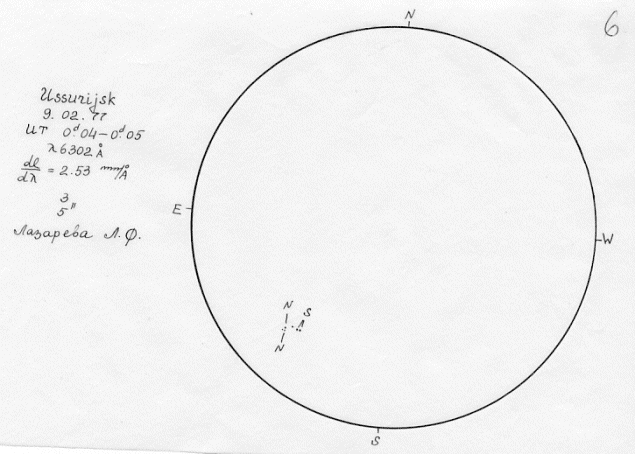 N
6
Ussurijsk
9.02.77
UT 0ᵈ.04–0ᵈ.05
λ6302Å
dl/dλ = 2.53 mm/Å
3
5"
Лазарева Л.Ф.
E
W
N
S
N
S